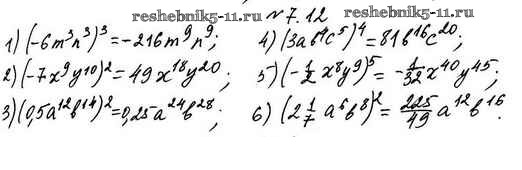 reshebnik5-11.ru
№ 7.12
reshebnik5-11.ru
1) (-6m³n³)³=-216m⁹n⁹; 4) (3ab⁴c⁵)⁴=81b¹⁶c²⁰;
2) (-7x⁹y¹⁰)²=49x¹⁸y²⁰; 5) (-1/2 x⁸y⁹)⁵= -1/32 x⁴⁰y⁴⁵;
3) (0,5a¹²b¹⁴)²=0,25a²⁴b²⁸; 6) (2 1/7 a⁶b⁸)²= 225/49 a¹²b¹⁶.